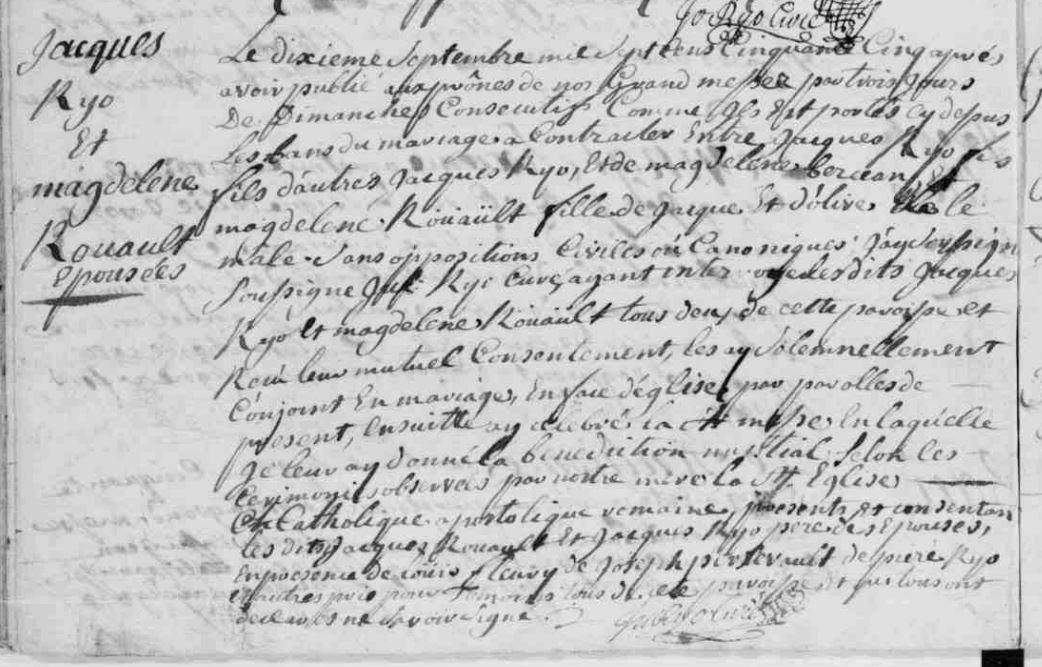 Jo Ryo Curé
Jacques
Ryo
Et
magdelene
Rouault
Epousées
Le dixieme Septembre mil Sept Cens Cinquante Cinq aprés
avoir publié aux prônes de nos Grand messes par trois Jours
De Dimanches Consecutifs Comme Ils Est portés Cy depus
Les bans du mariage a Contracter Entre Jacques Ryo
fils d'autres Jacques Ryo, Et de magdelene Et
magdelene Roüaült fille de Jacque Et d'olive le
male Sans oppositions Civiles oú Canoniques
Soussigné Ryo Curé, ayant inter ogé les dits Jacques
Ryo Et magdelene Roüaült tous deux de cette paroisse et
Reçu leur mutuel Consentement, les ay Solemnellement
Conjoint En mariage, En face d'église, par parolles de
present, Ensuitte ay célébré la Ste messe En laquelle
Je leur ay donné la bénédiction nuptial Selon les
Cérimonies observées par nostre mere la Ste Eglise
Catholique apostolique romaine, presents et consentan
les dits Jacques Rouault Et Jacques Ryo pere des Epousés,
En presence de Loüis Fleury de Joseph de pieré Ryo
Et autres pour Temoins tous de cette paroisse Et qui tous ont
declarés ne Savoir Signé.
Ryo Curé